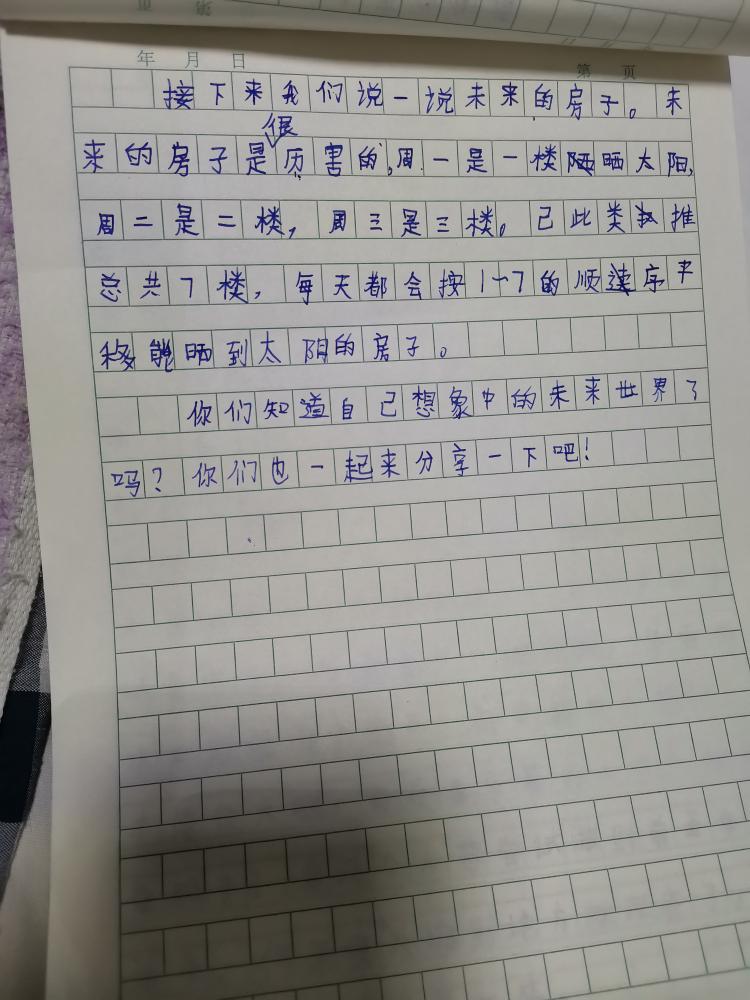 年 月 日 第 页
接下来我们说一说未来的房子。未
很
来的房子是历害的,周一是一楼晒太阳,
周二是二楼,周三是三楼。已此类推
总共7楼,每天都会按1~7的顺序平
移能晒到太阳的房子。
你们知道自己想象中的未来世界了
吗?你们也一起来分享一下吧!